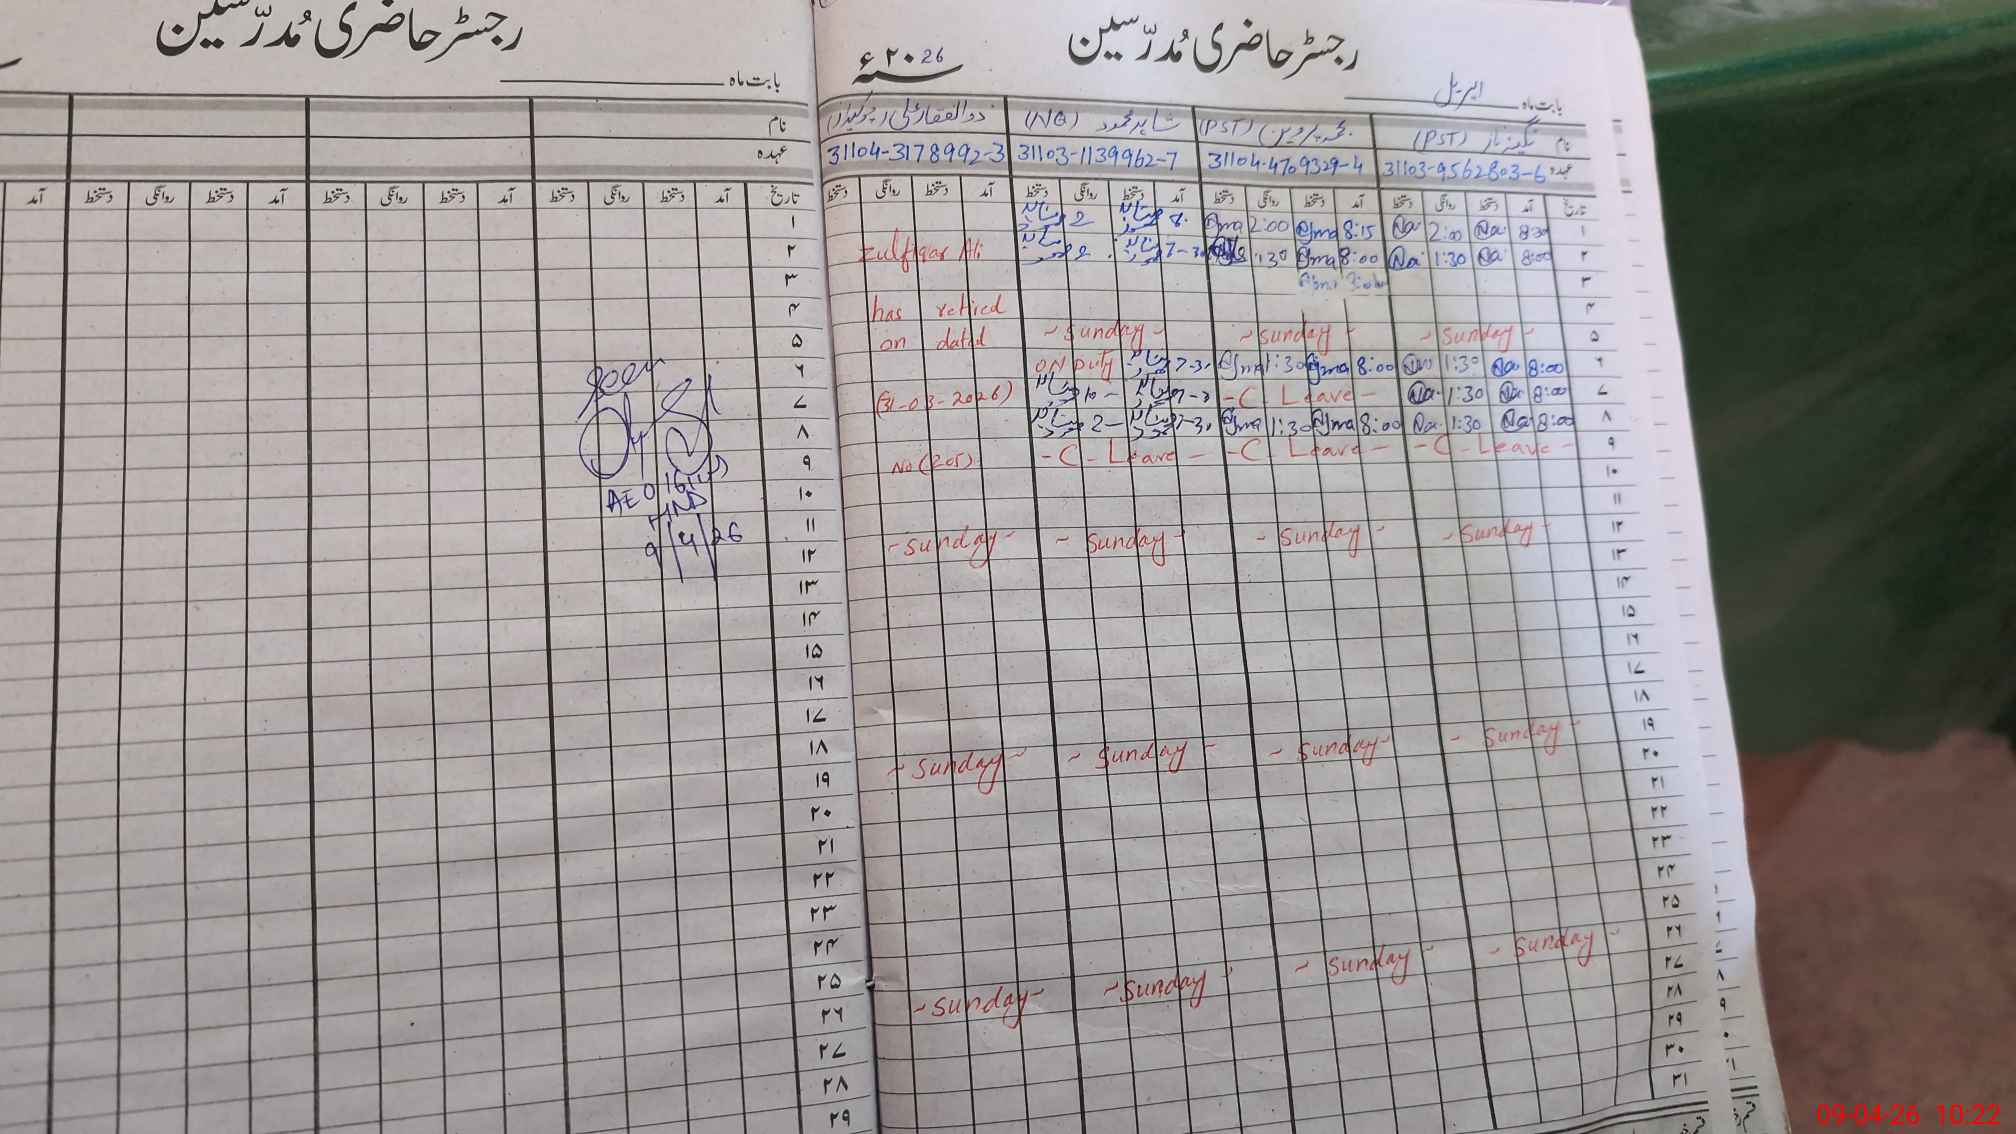 رجسٹر حاضری مُدرّسین
بابت ماہ
نام
عہدہ
تاریخ آمد دستخط روانگی دستخط آمد دستخط روانگی دستخط آمد دستخط روانگی دستخط آمد
۱
۲
۳
۴
۵
۶
۷
۸
۹
۱۰
۱۱
۱۲
۱۳
۱۴
۱۵
۱۶
۱۷
۱۸
۱۹
۲۰
۲۱
۲۲
۲۳
۲۴
۲۵
۲۶
۲۷
۲۸
۲۹
AEO
9/4/26
رجسٹر حاضری مُدرّسین
۲۰26ء
بابت ماہ اپریل
نام نگینہ ناز (PST) نجمہ پروین (PST) شاہد محمود (NQ) ذوالفقار علی (چوکیدار)
عہدہ 31103-9562803-6 31104-4709329-4 31103-1139962-7 31104-3178992-3
تاریخ آمد دستخط روانگی دستخط آمد دستخط روانگی دستخط آمد دستخط روانگی دستخط آمد دستخط روانگی دستخط
۱ 8:30 Na 2:00 Na 8:15 Najma 2:00 Najma 8 شاہد محمود 2 شاہد محمود
۲ 8:00 Na 1:30 Na 8:00 Najma 1:30 7-30 شاہد محمود 2 شاہد محمود Zulfiqar Ali
۳
۴ has retired
۵ ~ Sunday ~ ~ Sunday ~ ~ Sunday ~ on dated
۶ 8:00 Na 1:30 Na 8:00 Najma 1:30 Najma 7-30 شاہد ON Duty
۷ 8:00 Na 1:30 Na - C Leave - شاہد محمود شاہد محمود (31-03-2026)
۸ 8:00 Na 1:30 Na 8:00 Najma 1:30 Najma 7-30 شاہد محمود 2 شاہد محمود
۹ - C - Leave - - C - Leave - - C - Leave - No (205)
۱۰
۱۱
۱۲ ~ Sunday ~ ~ Sunday ~ ~ Sunday ~ ~ Sunday ~
۱۳
۱۴
۱۵
۱۶
۱۷
۱۸
۱۹ ~ Sunday ~ ~ Sunday ~ ~ Sunday ~ ~ Sunday ~
۲۰
۲۱
۲۲
۲۳
۲۴
۲۵
۲۶ ~ Sunday ~ ~ Sunday ~ ~ Sunday ~ ~ Sunday ~
۲۷
۲۸
۲۹
۳۰
۳۱
09-04-26 10:22